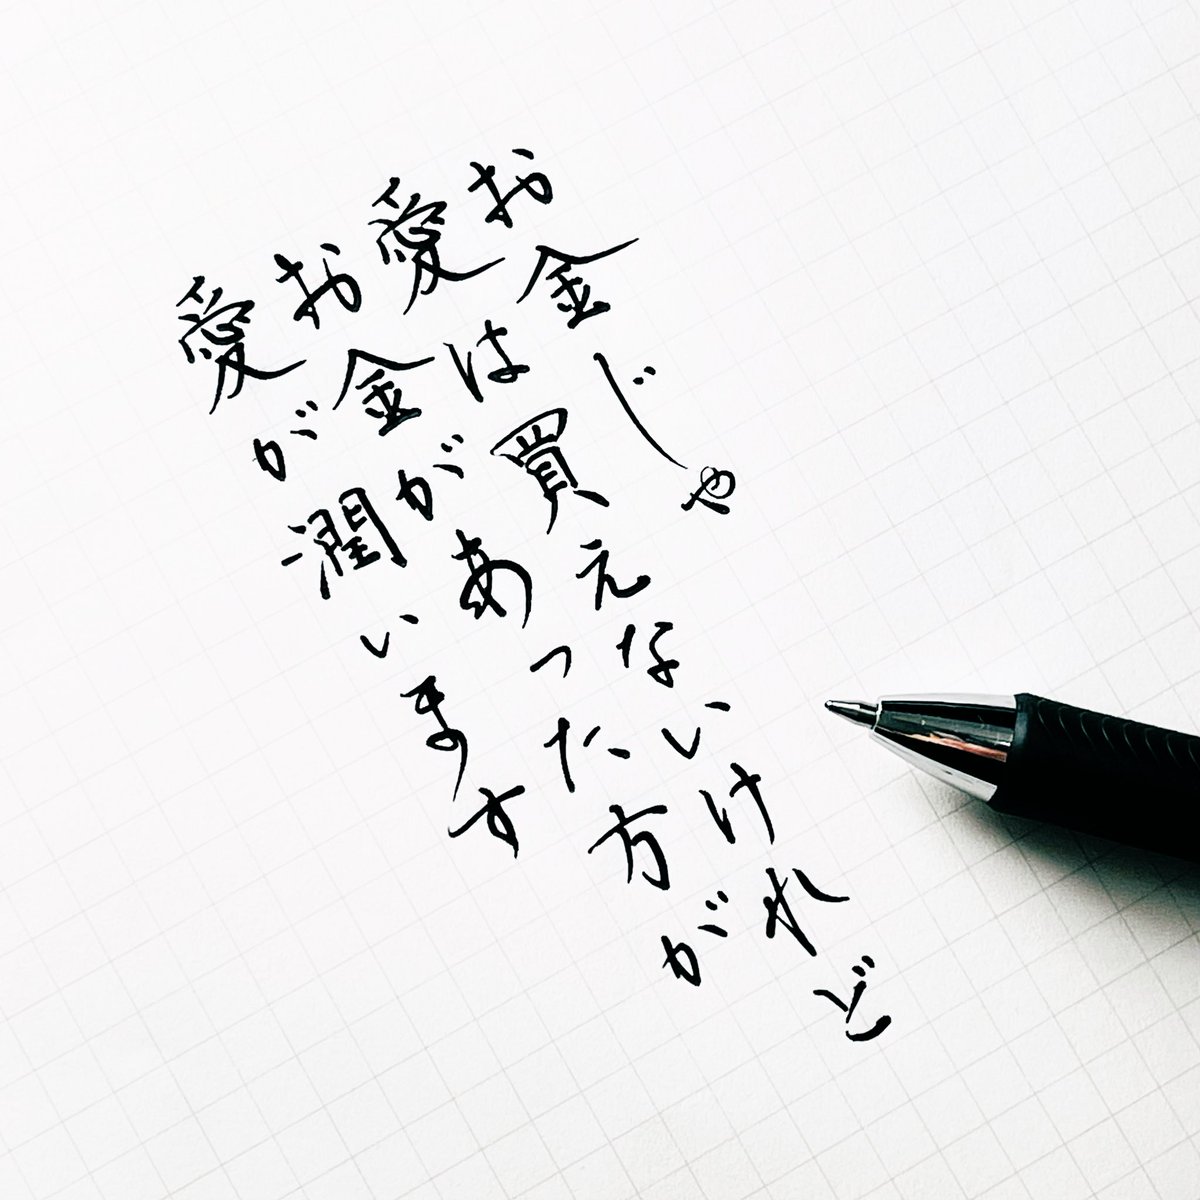 お金じゃ
愛は買えないけれど
お金があった方が
愛が潤います